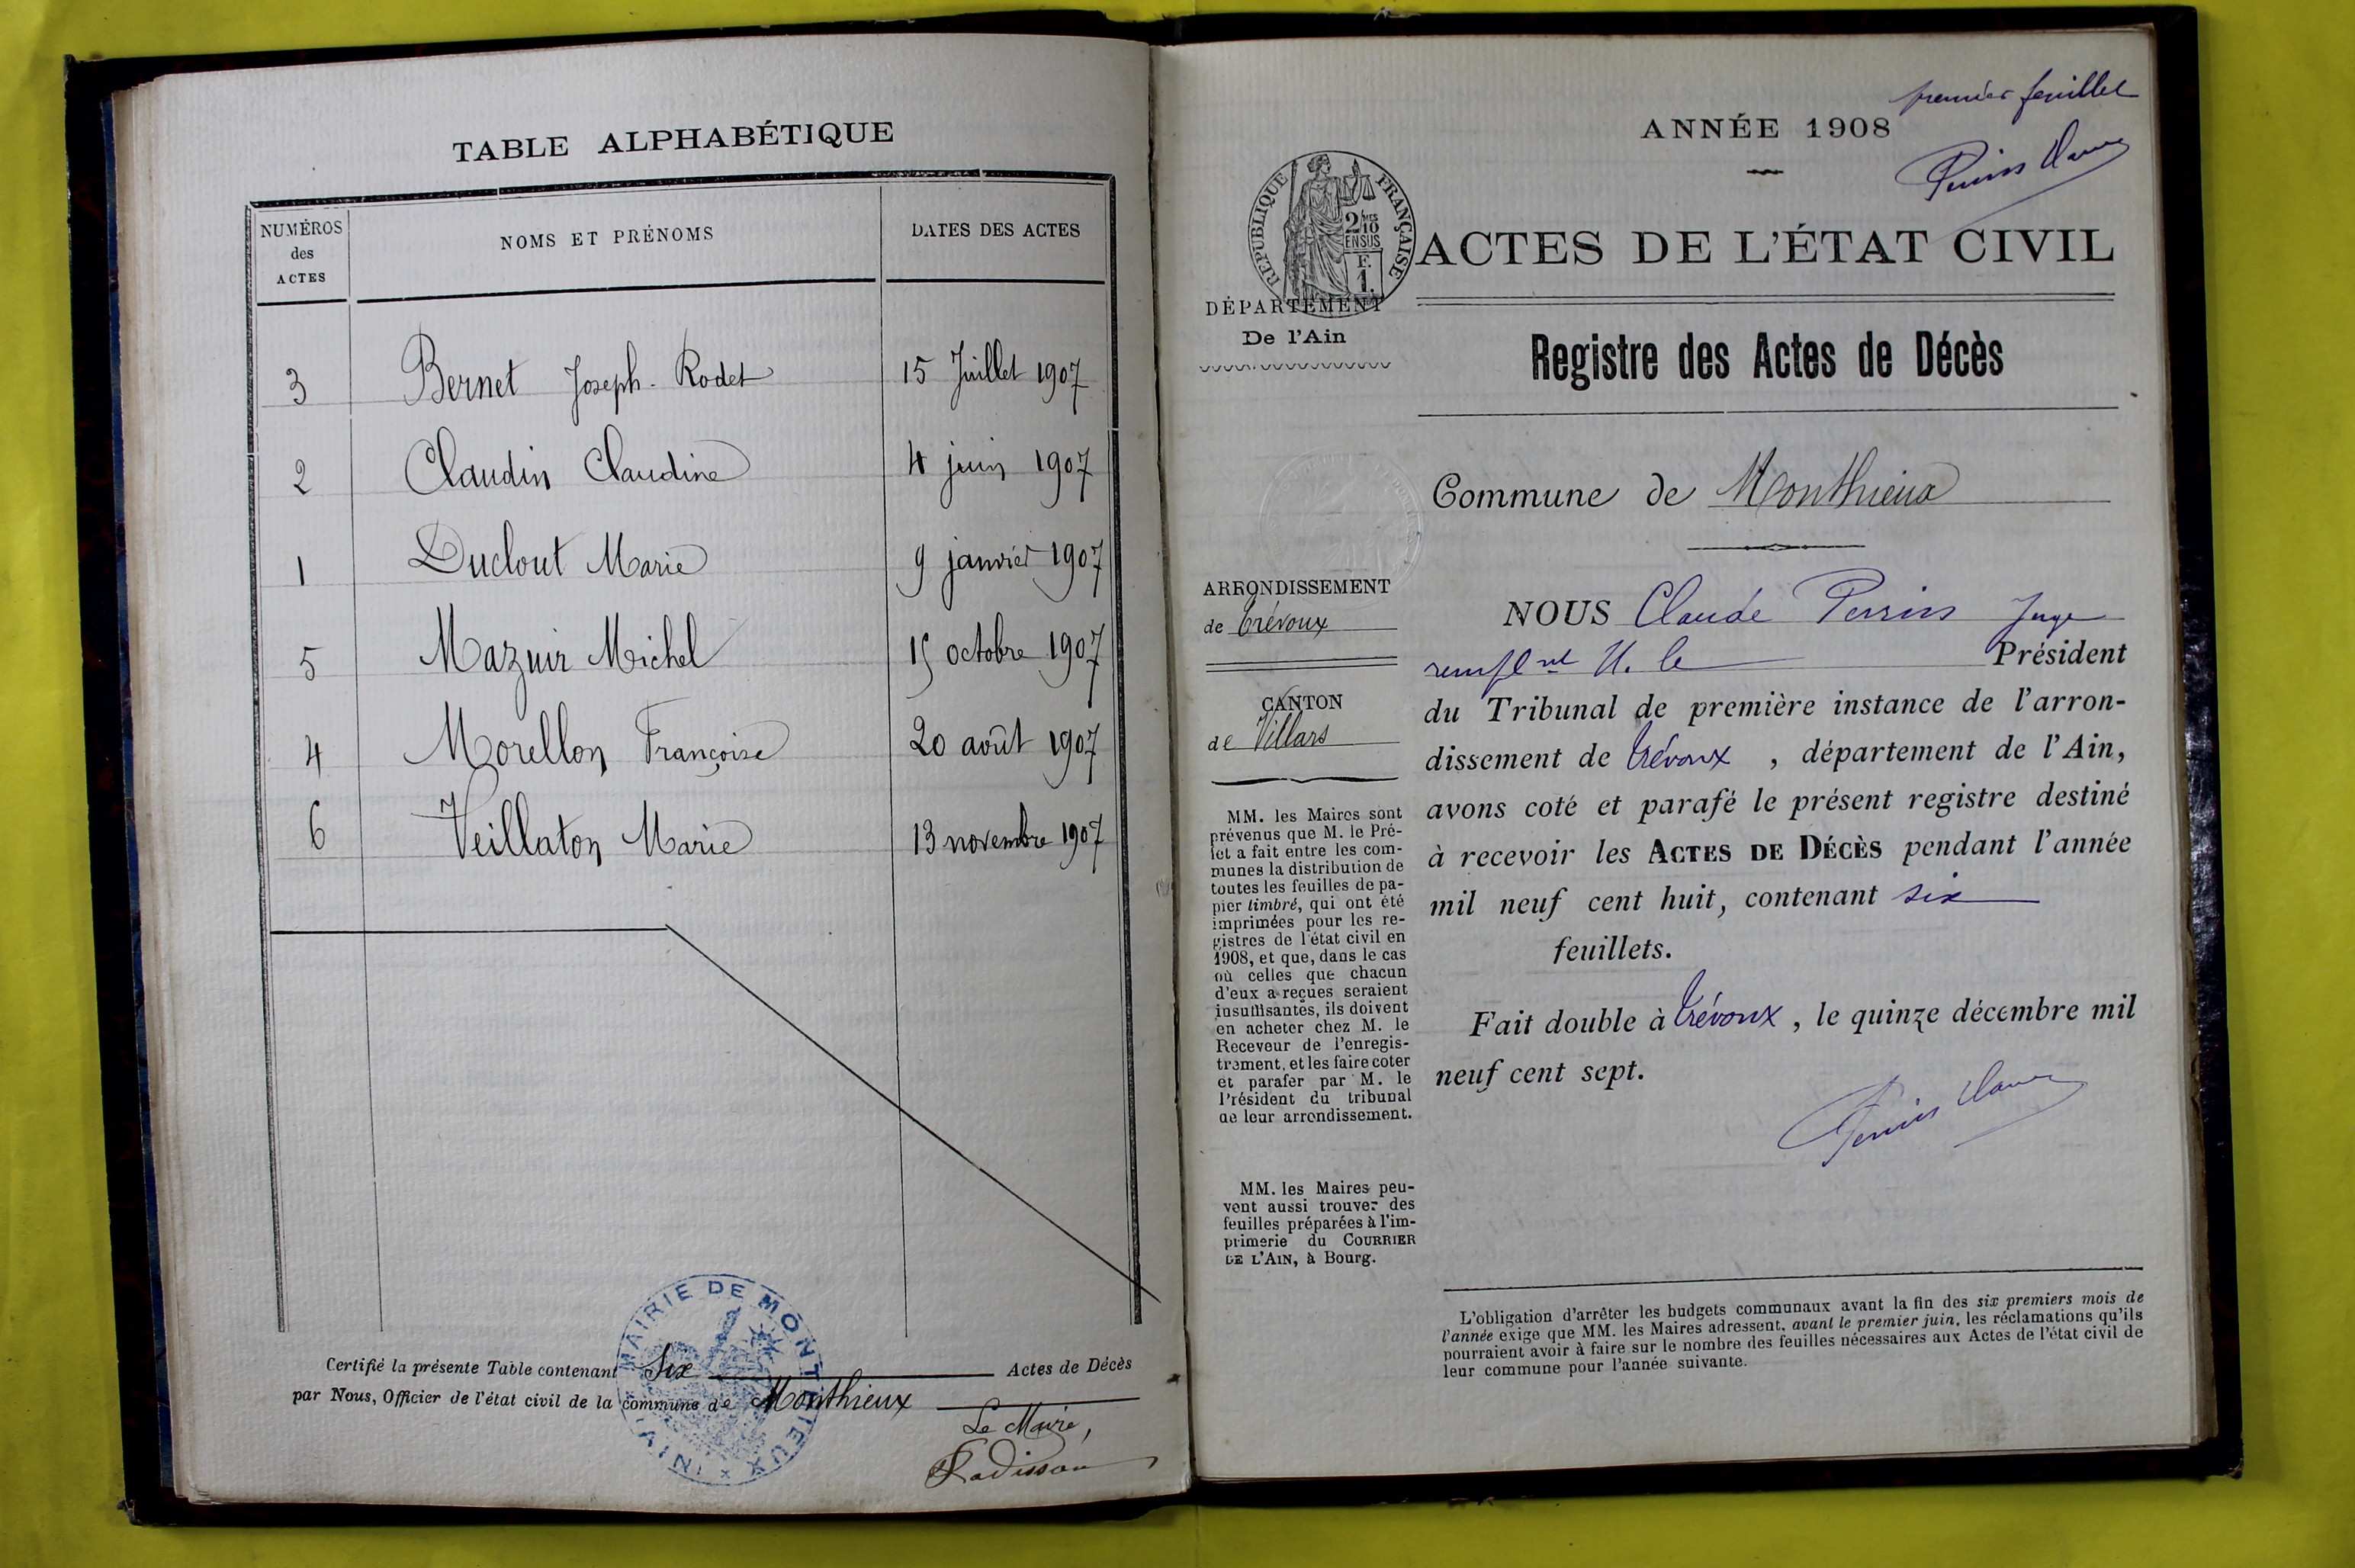 TABLE ALPHABÉTIQUE
NUMÉROS des ACTES NOMS ET PRÉNOMS DATES DES ACTES
3 Bernet Joseph-Rodet 15 Juillet 1907
2 Claudin Claudine 4 juin 1907
1 Duclout Marie 9 janvier 1907
5 Mazuir Michel 15 octobre 1907
4 Morellon Françoise 20 août 1907
6 Veillaton Marie 13 novembre 1907
Certifié la présente Table contenant Six Actes de Décès
par Nous, Officier de l'état civil de la commune de Monthieux
Le Maire,
Radisson
MAIRIE DE MONTHIEUX
(AIN)
premier feuillet
ANNÉE 1908
RÉPUBLIQUE FRANÇAISE
2/10
EN SUS
F.
1.
ACTES DE L'ÉTAT CIVIL
DÉPARTEMENT
De l'Ain
Registre des Actes de Décès
Commune de Monthieux
ARRONDISSEMENT
de Trévoux
CANTON
de Villars
MM. les Maires sont
prévenus que M. le Pré-
fet a fait entre les com-
munes la distribution de
toutes les feuilles de pa-
pier timbré, qui ont été
imprimées pour les re-
gistres de l'état civil en
1908, et que, dans le cas
où celles que chacun
d'eux a reçues seraient
insuffisantes, ils doivent
en acheter chez M. le
Receveur de l'enregis-
trement, et les faire coter
et parafer par M. le
Président du tribunal
de leur arrondissement.
MM. les Maires peu-
vent aussi trouver des
feuilles préparées à l'im-
primerie du COURRIER
DE L'AIN, à Bourg.
NOUS Claude Perrin Juge
rempl.nt M. le Président
du Tribunal de première instance de l'arron-
dissement de Trévoux, département de l'Ain,
avons coté et parafé le présent registre destiné
à recevoir les ACTES DE DÉCÈS pendant l'année
mil neuf cent huit, contenant six
feuillets.
Fait double à Trévoux, le quinze décembre mil
neuf cent sept.
L'obligation d'arrêter les budgets communaux avant la fin des six premiers mois de
l'année exige que MM. les Maires adressent, avant le premier juin, les réclamations qu'ils
pourraient avoir à faire sur le nombre des feuilles nécessaires aux Actes de l'état civil de
leur commune pour l'année suivante.